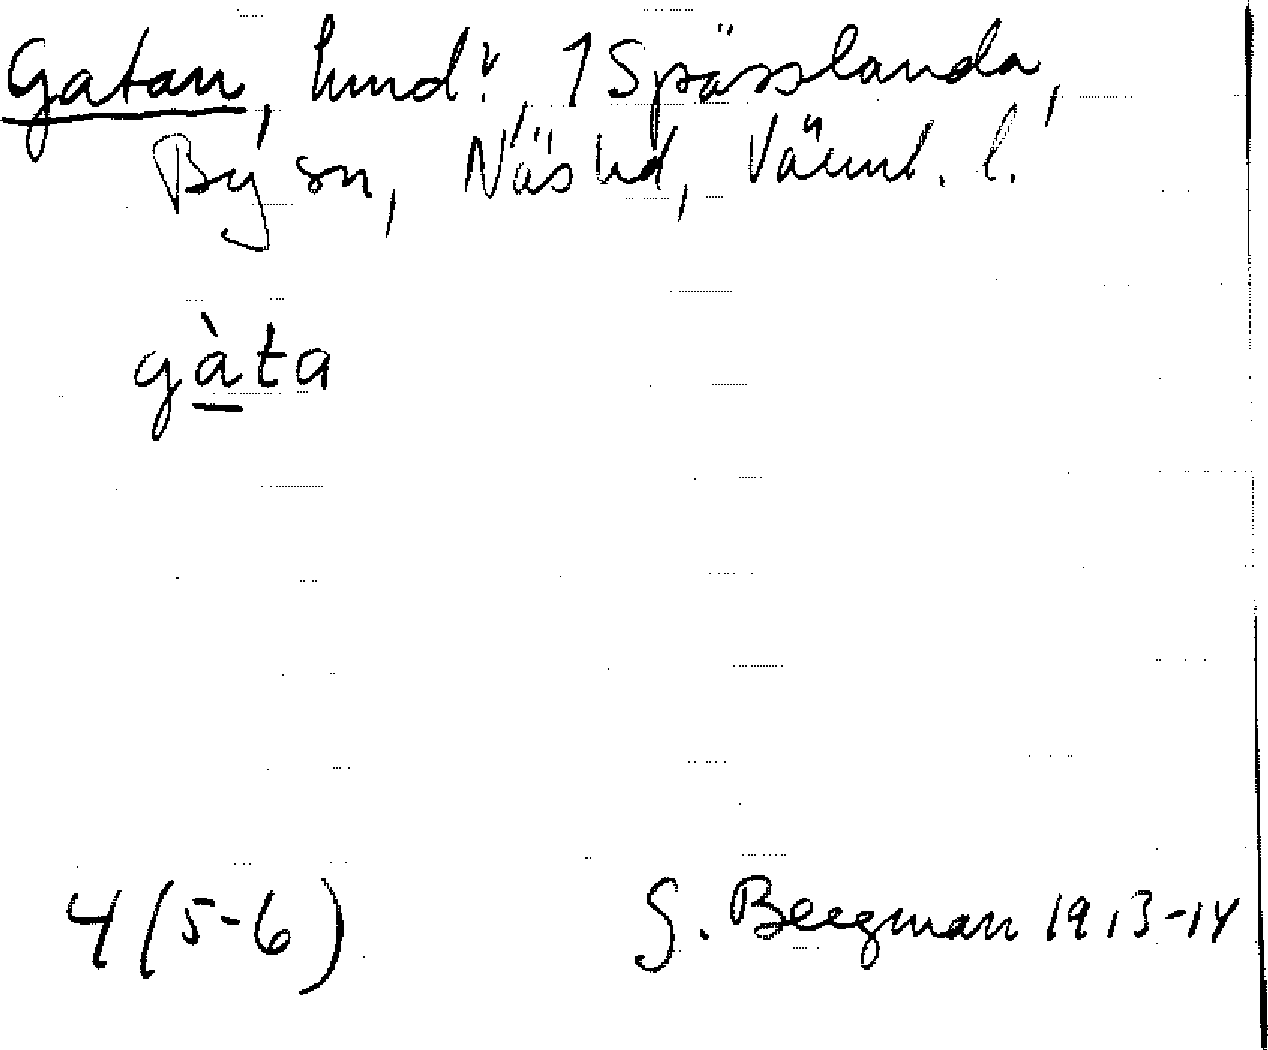 Gatan, hmd: 1 Spässlanda,
By sn, Näs hd, Värml. l.
gàta
4 (5-6)
G. Bergman 1913-14